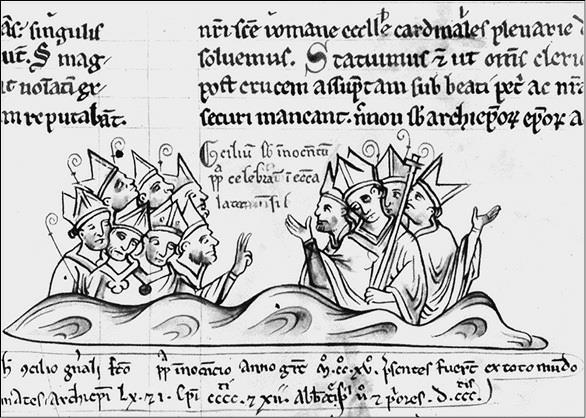 singulis
ut. S mag-
gr-
m reputabāt.
nr̄i scē romane eccl̄e cardinales plenarie d
soluemus. Statuimus ⁊ ut om̄is cleric
post crucem assūptam sub beati pet̄ ac nr̄a
securi maneant. n̄non sb̄ archiep̄orꝝ ep̄orꝝ a
Cōciliū sb̄ īnocentio
pp̄ celebratū ī ecc̄a
lateranēsi
Cōcilio gn̄ali fc̄o pp̄ innocēcio Anno gr̄e M. CC. XV. p̄sentes fuert̄ ex toto mundo
mates. Archiep̄i LX. ⁊ I. Ep̄i CCCC ⁊ XII ⁊ p̄ores. D. CCC.